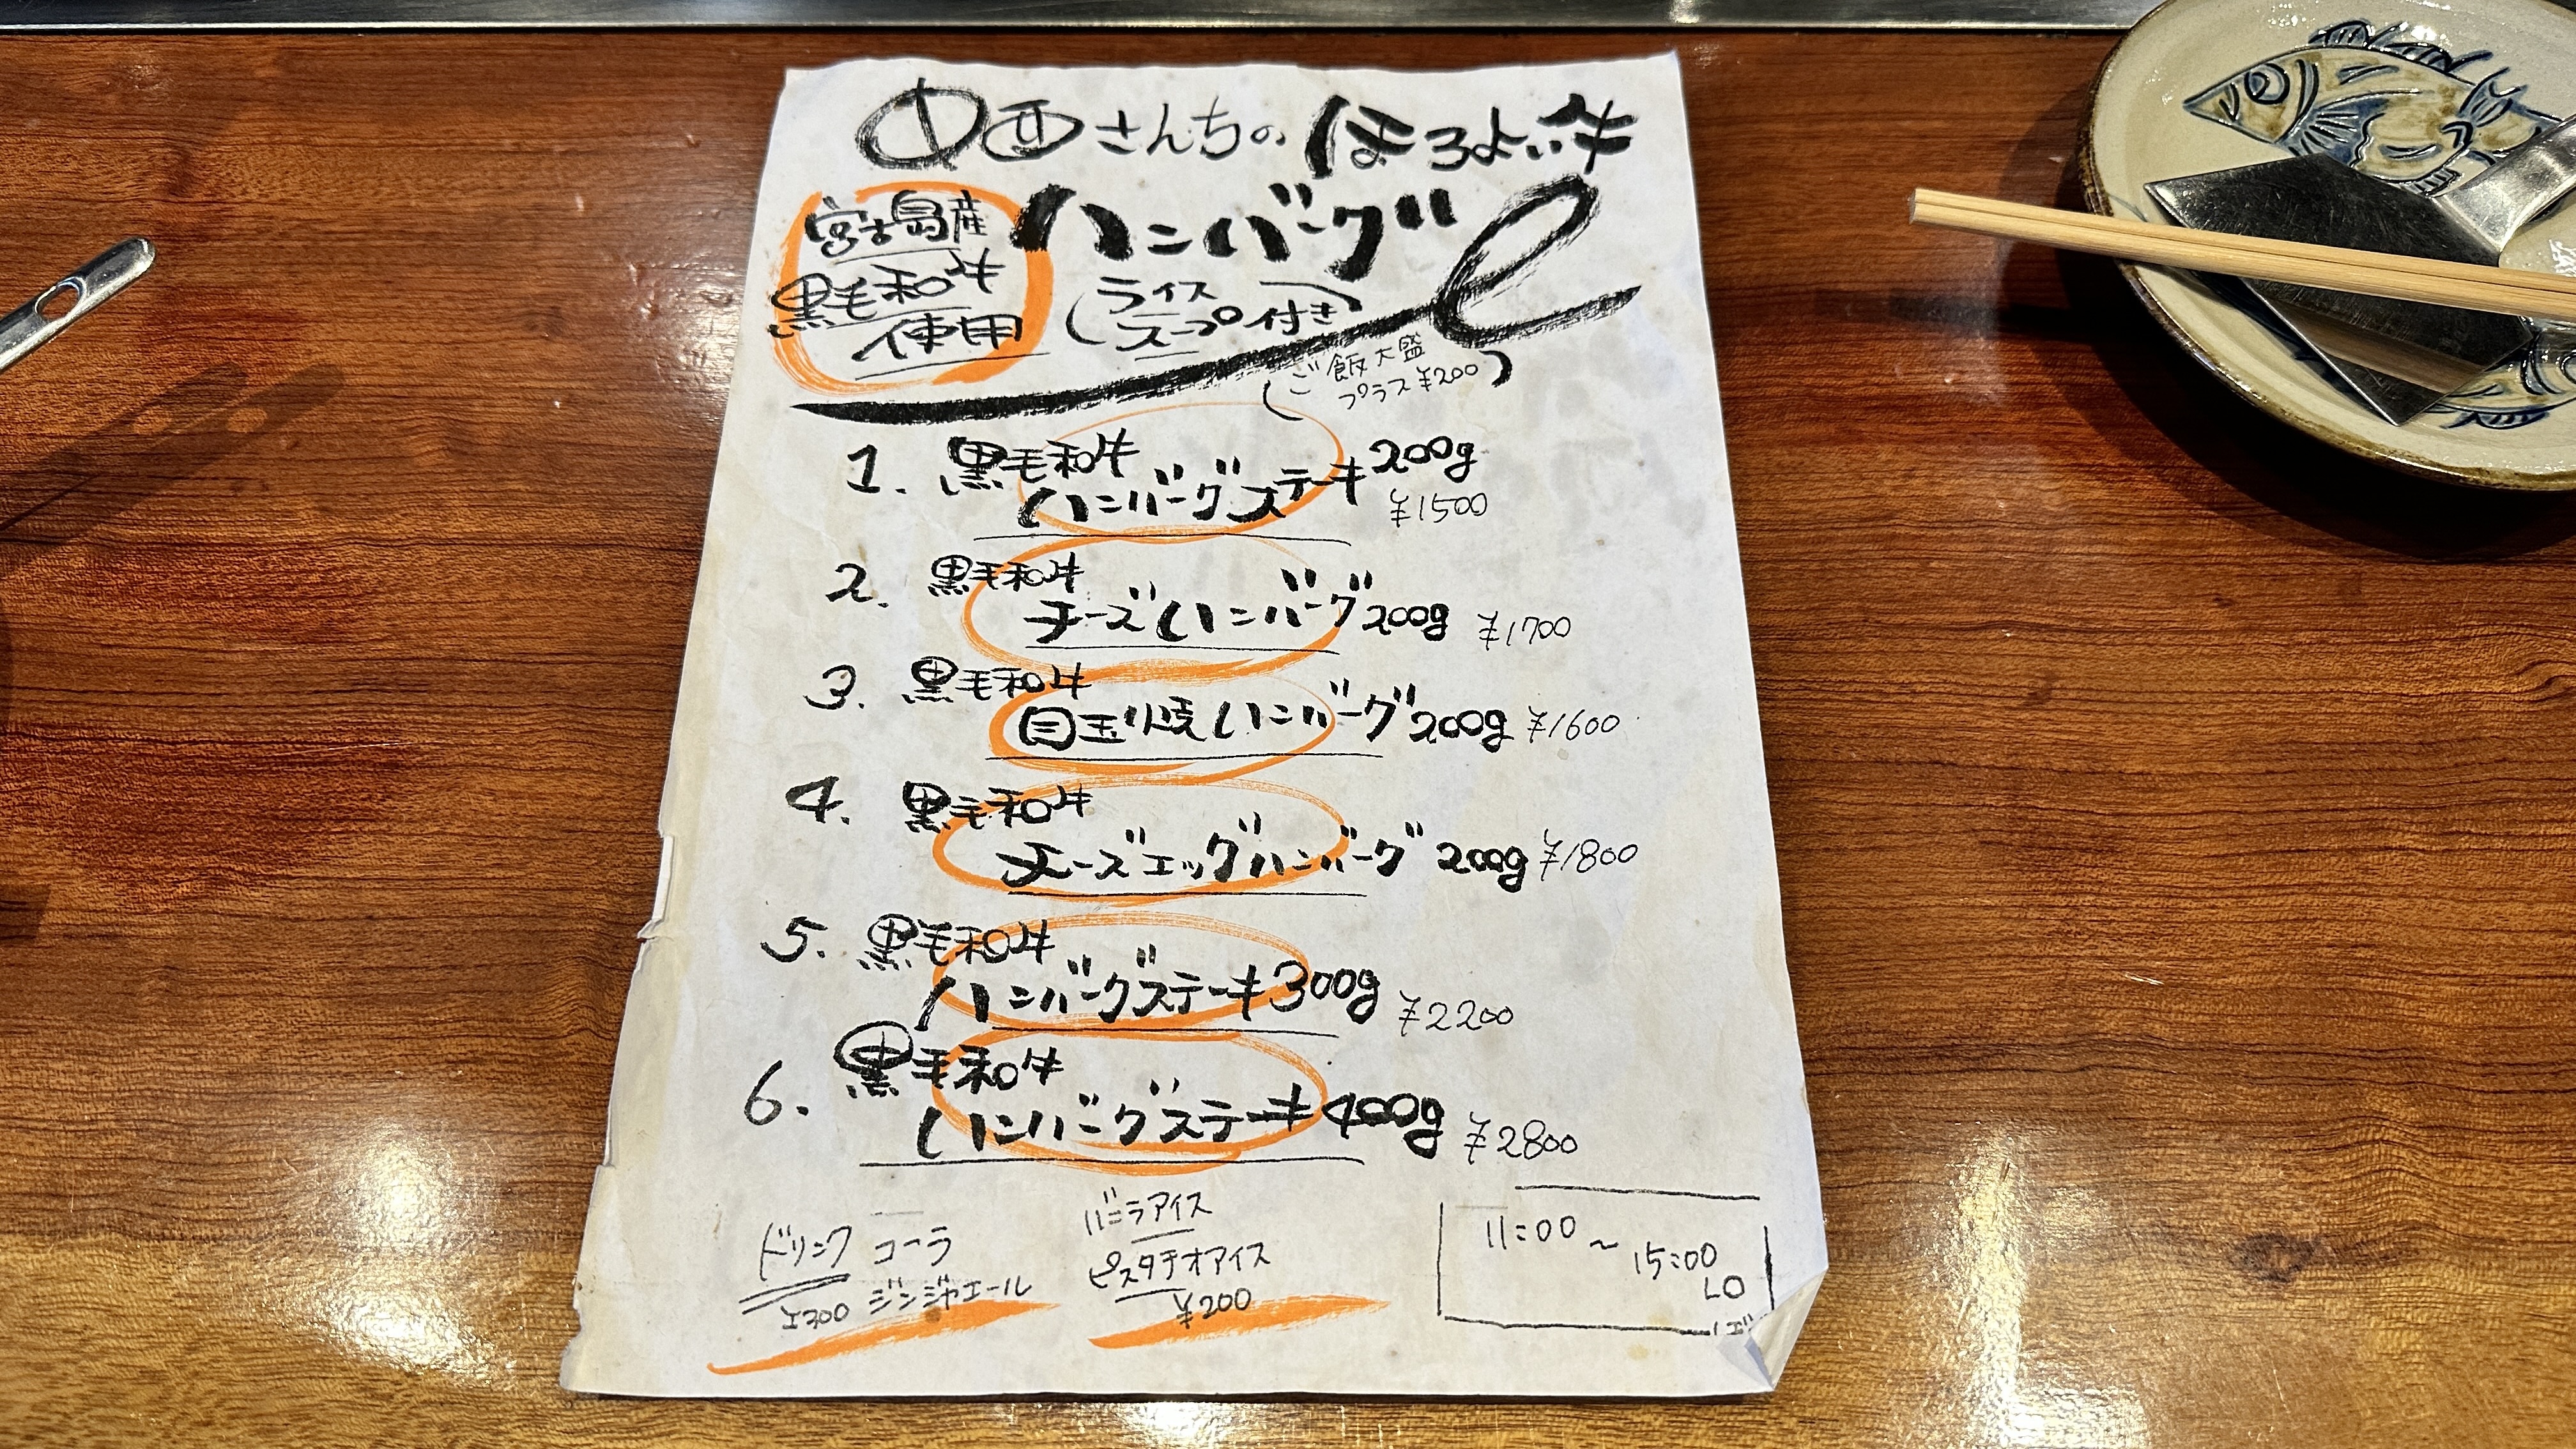 中西さんちのほろよい牛
ハンバーグ
宮古島産
黒毛和牛
使用
(ライス
スープ付き)
(ご飯大盛
プラス¥200)
1. 黒毛和牛
ハンバーグステーキ200g
¥1500
2. 黒毛和牛
チーズハンバーグ200g ¥1700
3. 黒毛和牛
目玉焼ハンバーグ200g ¥1600
4. 黒毛和牛
チーズエッグハンバーグ 200g ¥1800
5. 黒毛和牛
ハンバーグステーキ300g ¥2200
6. 黒毛和牛
ハンバーグステーキ400g ¥2800
ドリンク コーラ
¥300 ジンジャエール
バニラアイス
ピスタチオアイス
¥200
11:00~15:00
LO